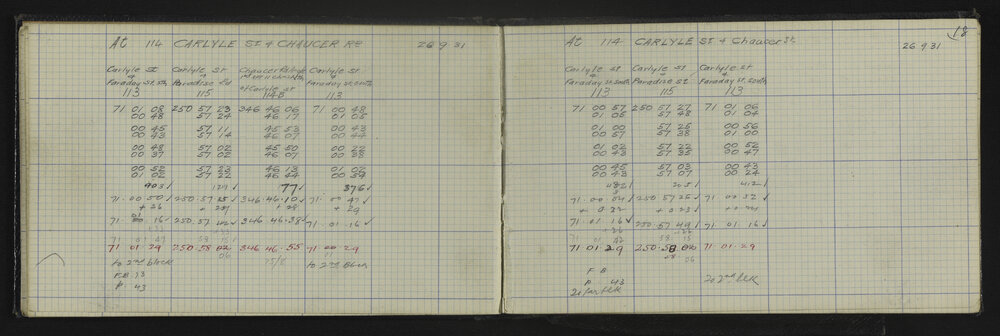 At 114 CARLYLE ST & CHAUCER RD 26 9 31
Carlyle St Carlyle St Chaucer Carlyle St
& & &
Faraday St. Sth Paradise Rd Faraday St. South
of Carlyle St
113 115 114B 113
71 01 08 250 57 23 346 46 06 71 00 48
00 48 57 24 46 17 01 05
00 45 57 11 45 53 00 43
00 43 57 14 46 07 00 44
00 48 57 02 45 50 00 22
00 37 57 02 46 07 00 38
00 52 57 23 46 13 01 02
01 02 57 22 46 44 00 39
903 77 376
71.00 50 250.57 15 346.46.10 71.00 47
+ 26 + 29
71. 16 250.57 346 46.38 71.01.16
71 01 29 250.58 02 346 46.55 71 29
06 75/8
to 2nd block to 2nd Block
F B 13
P 43
18
At 114 CARLYLE ST & Chaucer St. 26 9 31
Carlyle St Carlyle St Carlyle St
& & &
Faraday St. South Paradise St. Faraday St. South
113 115 113
71 00 57 250 57 27 71 01 06
01 05 57 48 01 04
01 00 57 25 00 56
00 57 57 38 01 00
01 02 57 22 00 52
00 43 57 35 00 47
00 45 57 03 00 43
00 43 57 07 00 24
482 205 412
71.00 54 250 57 25 71 00 52
+ 0 22 + 0 23
71.01 16 250.57 49 71 01 16
71 01 29 250.58 02 71.01.29
58 06
F B
P 43 to 2nd blk